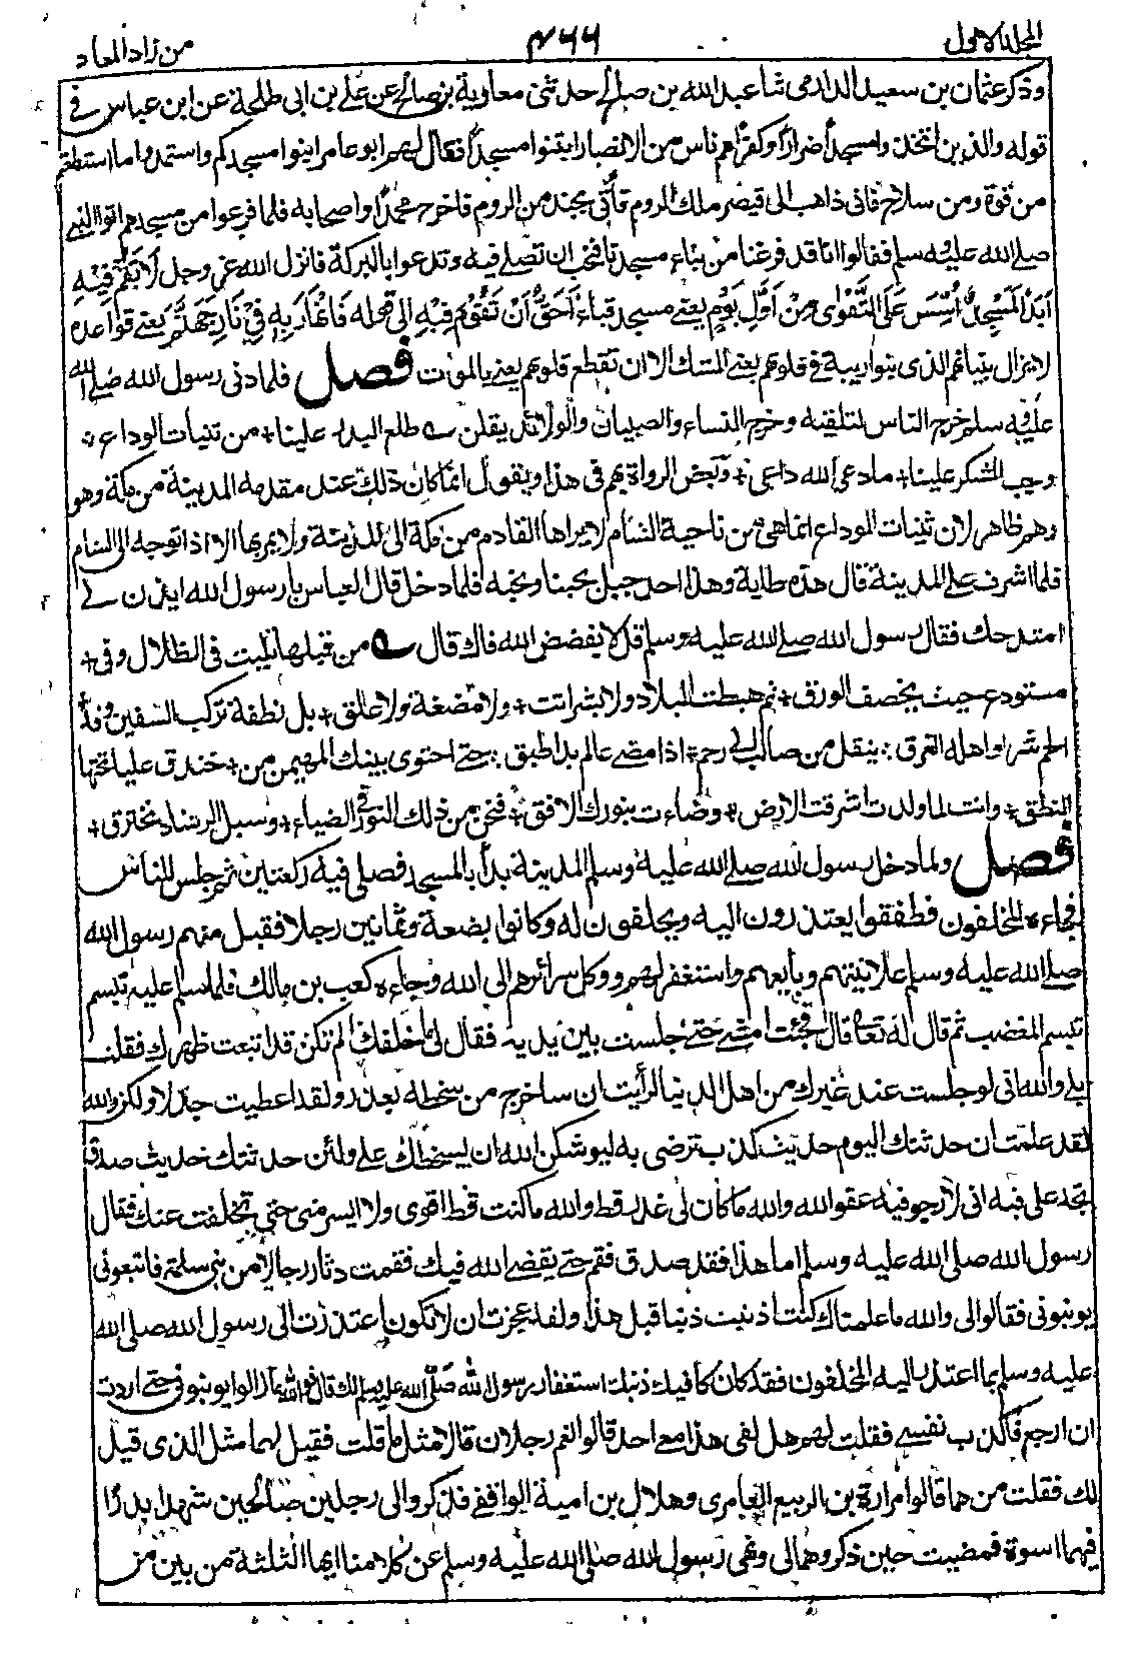 المجلد الاول
٤٦٦
من زاد المعاد
وذكر عثمان بن سعيد الدارمى ثنا عبد الله بن صالح حدثنى معاوية بن صالح عن على بن ابى طلحة عن ابن عباس فى
قوله والذين اتخذوا مسجدا ضرارا وكفرا هم ناس من الانصار ابتنوا مسجدا فقال لهم ابو عامر ابنوا مسجدكم واستمدوا ما استطعتم
من قوة ومن سلاح فانى ذاهب الى قيصر ملك الروم فآتى بجند من الروم فاخرج محمدا واصحابه فلما فرغوا من مسجدهم اتوا النبى
صلے الله عليه سلم فقالوا انا قد فرغنا من بناء مسجدنا فنحب ان تصلے فيه وتدعوا بالبركة فانزل الله عز وجل لَا تَقُمْ فِيْهِ
اَبَدًا لَمَسْجِدٌ اُسِّسَ عَلَى التَّقْوٰى مِنْ اَوَّلِ يَوْمٍ يعنے مسجد قباء اَحَقُّ اَنْ تَقُوْمَ فِيْهِ الى قوله فَانْهَارَ بِهٖ فِيْ نَارِ جَهَنَّمَ يعنے قواعده
لا يزال بنيانهم الذى بنوا ريبة فى قلوبهم يعنے الشك الا ان تقطع قلوبهم يعنے بالموت فصل فلما دنى رسول الله صلے الله
عليه سلم خرج الناس لتلقيه وخرج النساء والصبيان والولائد يقلن ؎ طلع البدر علينا + من ثنيات الوداع ؞
وجب الشكر علينا + ما دعى الله داعى + وبعض الرواة يهم فى هذا ويقول انما كان ذلك عند مقدمه المدينة من مكة وهو
وهم ظاهر لان ثنيات الوداع انما هى من ناحية الشام لا يراها القادم من مكة الى المدينة ولا يمر بها الا اذا توجه الى الشام
فلما اشرف على المدينة قال هذه طابة وهذا احد جبل يحبنا ونحبه فلما دخل قال العباس يا رسول الله ايذن لے
امتدحك فقال رسول الله صلے الله عليه وسلم قل لا يفضض الله فاك قال ؎ من قبلها طبت فى الظلال وفى +
مستودع حيث يخصف الورق + ثم هبطت البلاد ولا بشر انت + ولا مضغة ولا علق + بل نطفة تركب السفين وقد
الجم نسرا واهله الغرق ؞ ينقل من صالب الى رحم + اذا مضے عالم بدا طبق ؞ حتے احتوى بيتك المهيمن من + خندق عليا تحتها
النطق + وانت لما ولدت اشرقت الارض + وضاءت بنورك الافق + فنحن من ذلك النور فى الضياء + وسبل الرشاد نخترق +
فصل ولما دخل رسول الله صلے الله عليه وسلم المدينة بدأ بالمسجد فصلى فيه ركعتين ثم جلس للناس
فجاءه المخلفون فطفقوا يعتذرون اليه ويحلفون له وكانوا بضعة وثمانين رجلا فقبل منهم رسول الله
صلے الله عليه وسلم علانيتهم وبايعهم واستغفر لهم ووكل سرائرهم الى الله وجاءه كعب بن مالك فلما سلم عليه تبسم
تبسم المغضب ثم قال له تعال قال فجئت امشے حتے جلست بين يديه فقال لى ما خلفك الم تكن قد ابتعت ظهرك فقلت
بلے والله انى لو جلست عند غيرك من اهل الدنيا لرأيت ان ساخرج من سخطه بعذر ولقد اعطيت جدلا ولكن والله
لقد علمت ان حدثتك اليوم حديث كذب ترضى به ليوشكن الله ان يسخطك على ولئن حدثتك حديث صدق
تجد على فيه انى لارجو فيه عفو الله والله ما كان لى عذر قط والله ما كنت قط اقوى ولا ايسر منى حتى تخلفت عنك فقال
رسول الله صلى الله عليه وسلم اما هذا فقد صدق فقم حتے يقضے الله فيك فقمت وثار رجال من بنى سلمة فاتبعونى
يونبونى فقالوا لى والله ما علمناك كنت اذنبت ذنبا قبل هذا ولقد عجزت ان لا تكون اعتذرت الى رسول الله صلى الله
عليه وسلم بما اعتذر اليه المخلفون فقد كان كافيك ذنبك استغفار رسول الله صلى الله عليه وسلم لك قال فوالله ما زالوا يونبونى حتے اردت
ان ارجع فاكذب نفسے فقلت لهم هل لقى هذا معے احد قالوا نعم رجلان قالا مثل ما قلت فقيل لهما مثل الذى قيل
لك فقلت من هما قالوا مرارة بن الربيع العامرى وهلال بن امية الواقفے فذكروا لى رجلين صالحين شهدا بدرا
فيهما اسوة فمضيت حين ذكروهما لى ونهى رسول الله صلى الله عليه وسلم عن كلامنا ايها الثلثة من بين من